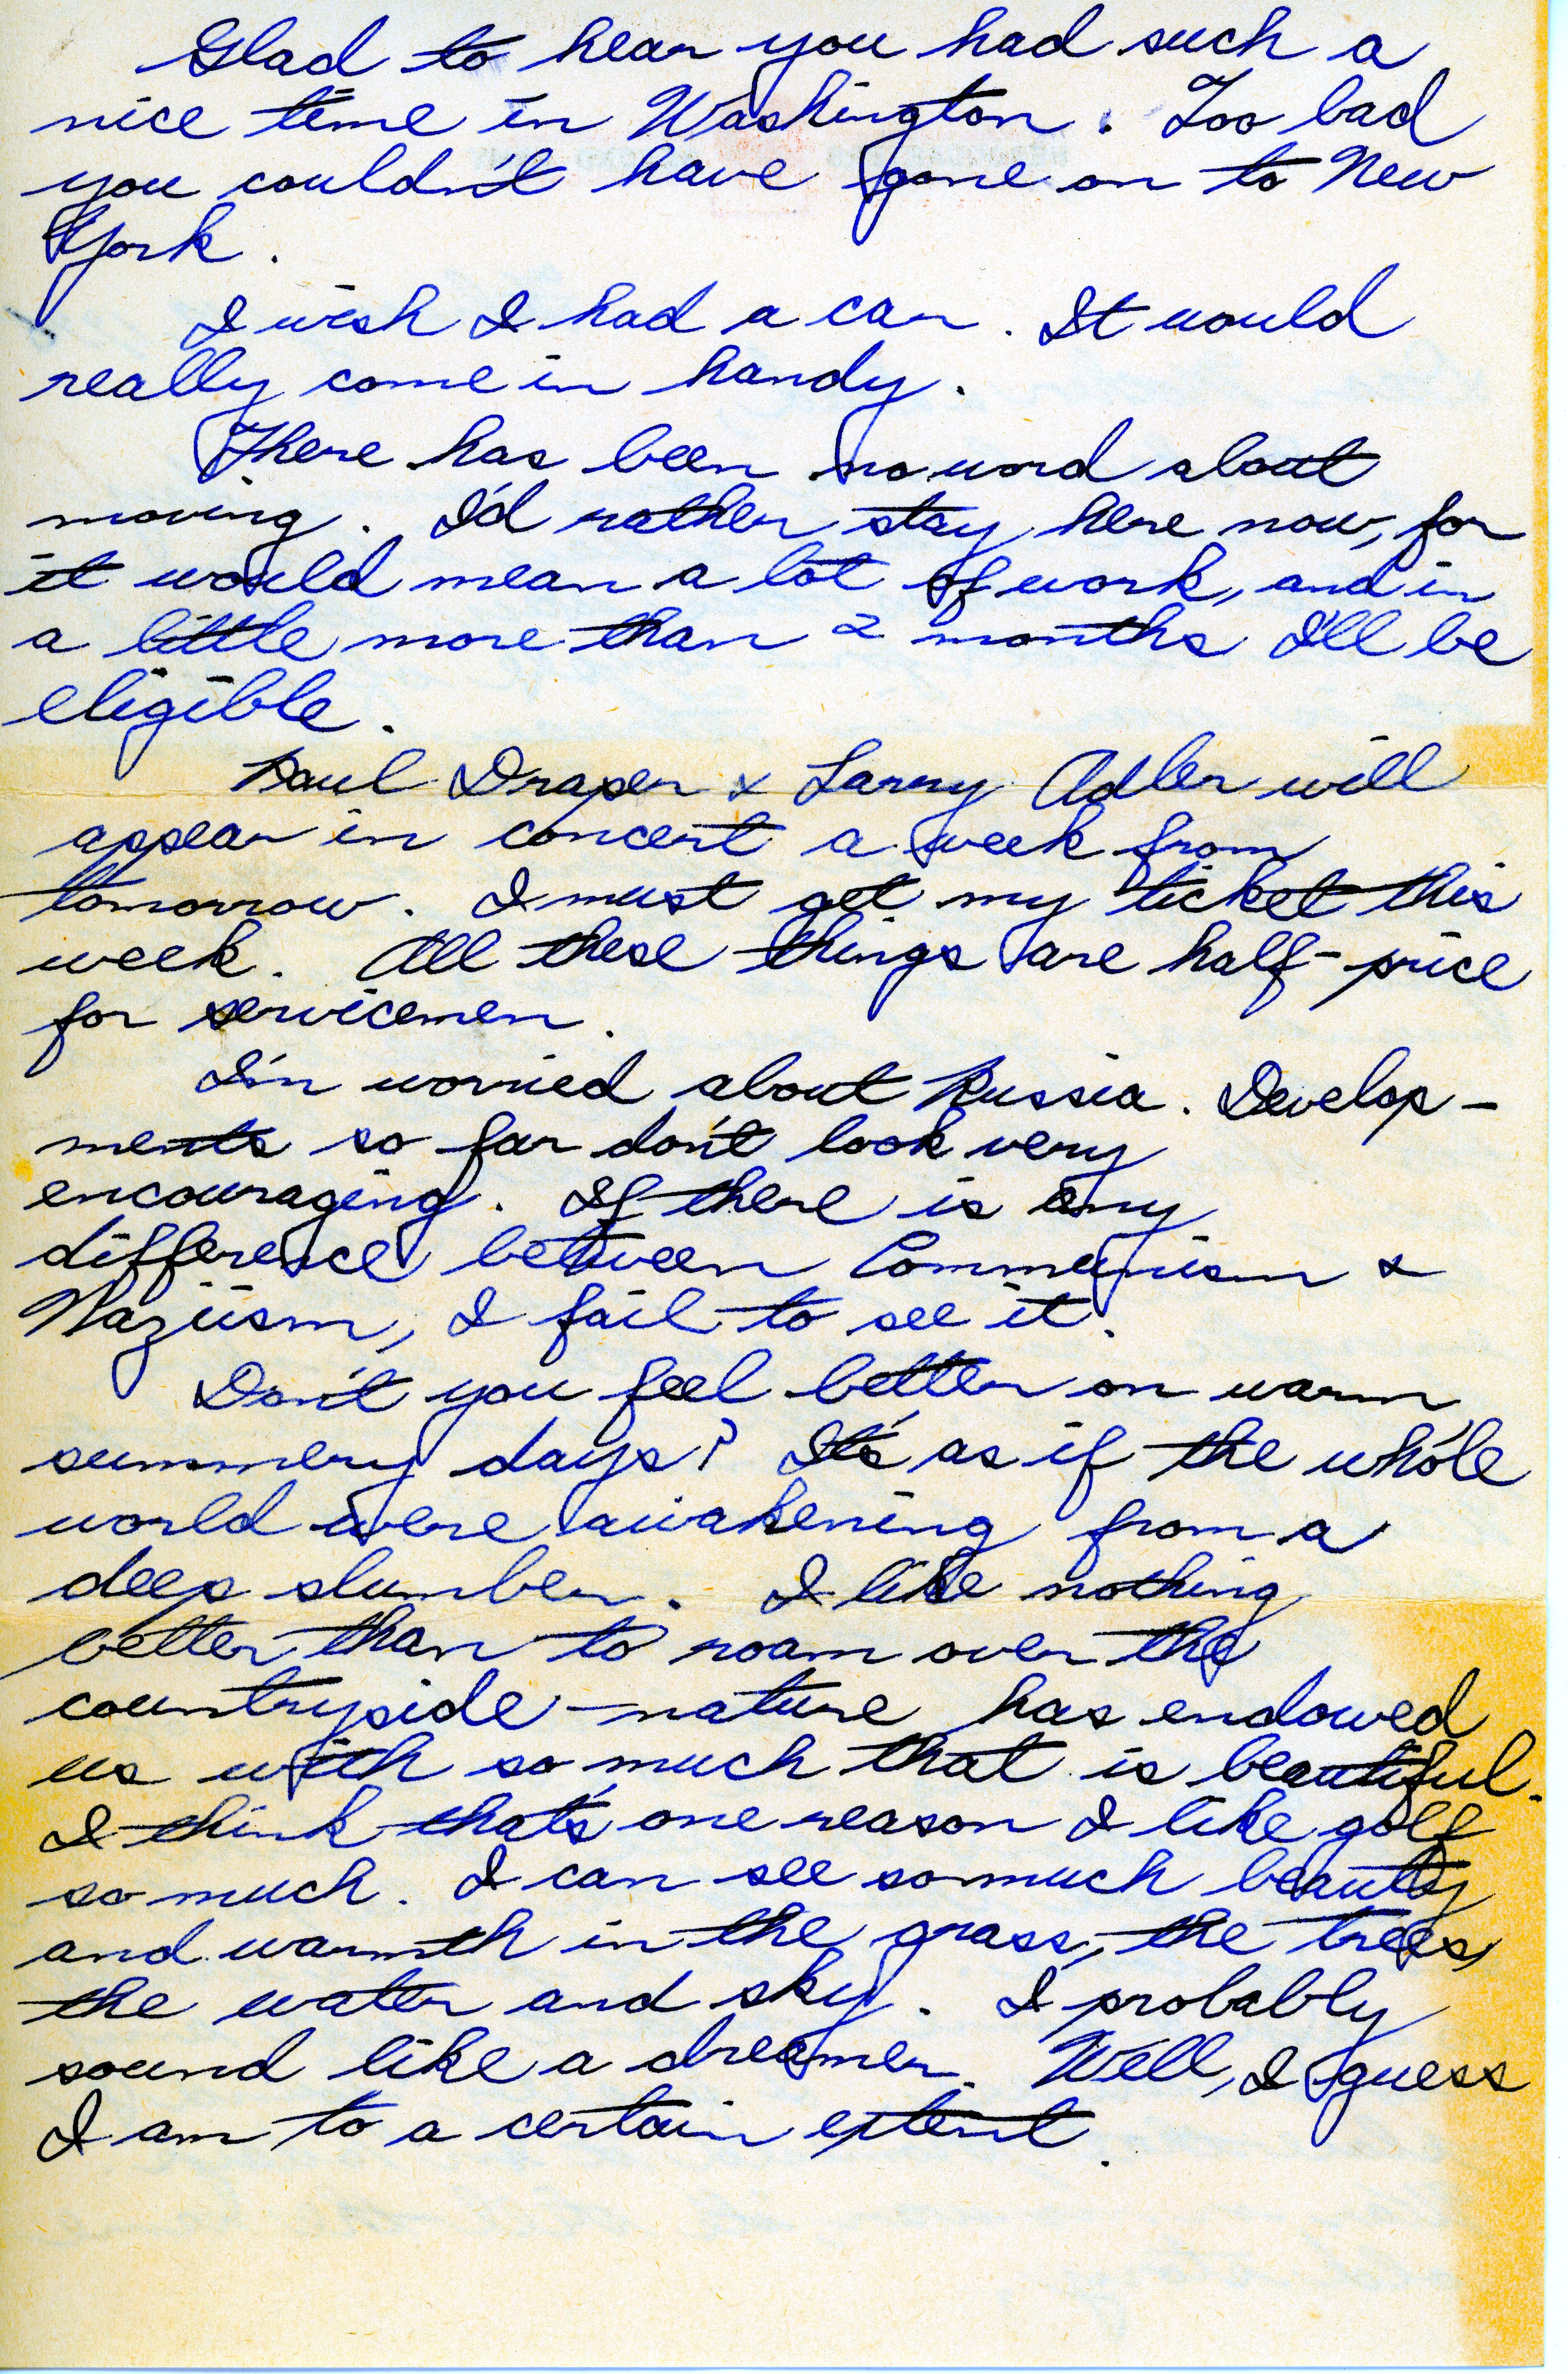 Glad to hear you had such a
nice time in Washington. Too bad
you couldn't have gone on to New
York.
I wish I had a car. It would
really come in handy.
There has been no word about
moving. I'd rather stay here now, for
it would mean a lot of work, and in
a little more than 2 months I'll be
eligible.
Paul Draper & Larry Adler will
appear in concert a week from
tomorrow. I must get my ticket this
week. All these things are half-price
for servicemen.
I'm worried about Russia. Develop-
ments so far don't look very
encouraging. If there is any
difference between Communism &
Naziism, I fail to see it.
Don't you feel better on warm
summery days? It's as if the whole
world were awakening from a
deep slumber. I like nothing
better than to roam over the
countryside - nature has endowed
us with so much that is beautiful.
I think that's one reason I like golf
so much. I can see so much beauty
and warmth in the grass, the trees,
the water and sky. I probably
sound like a dreamer. Well, I guess
I am to a certain extent.